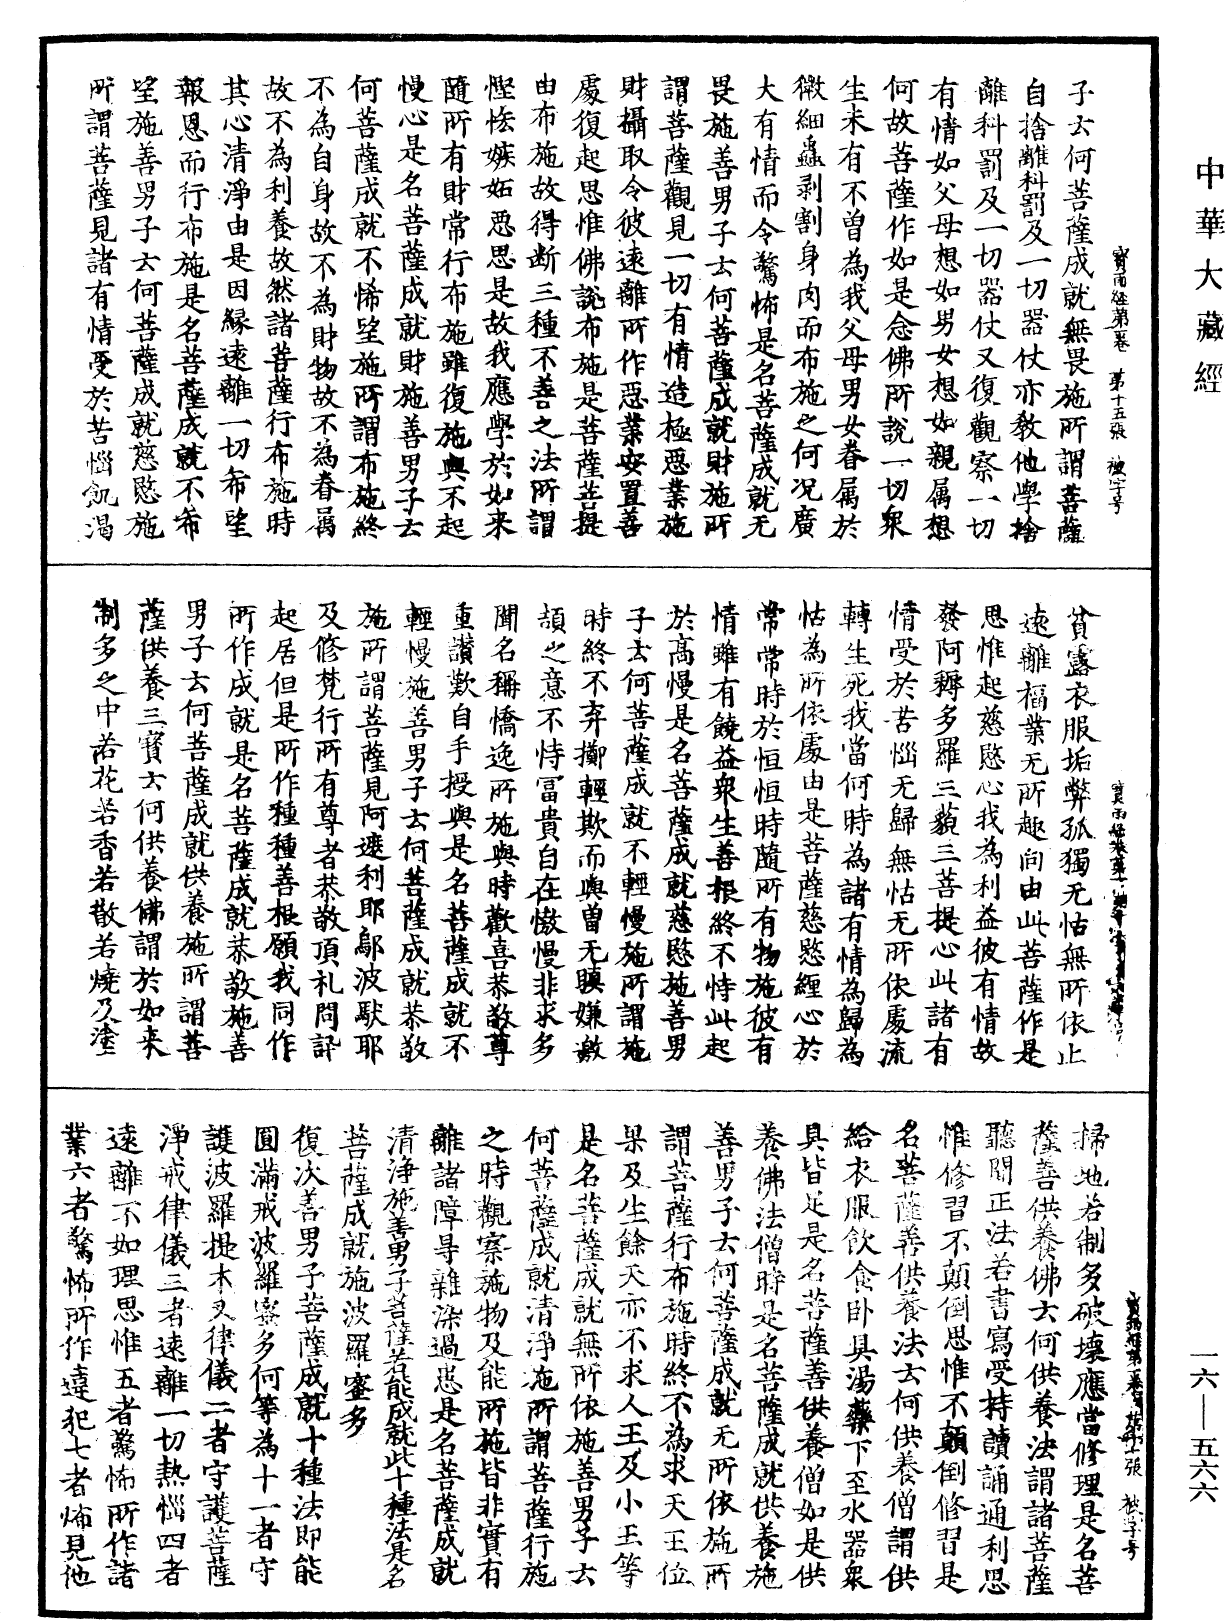 中華大藏經
寶雨經第一卷　第十五張　被字号
子云何菩薩成就無畏施所謂菩薩
自捨離科罰及一切器仗亦教他學捨
離科罰及一切器仗又復觀察一切
有情如父母想如男女想如親属想
何故菩薩作如是念佛所說一切衆
生未有不曾為我父母男女眷属於
微細蟲剥割身肉而布施之何況廣
大有情而令驚怖是名菩薩成就无
畏施善男子云何菩薩成就財施所
謂菩薩觀見一切有情造極惡業施
財攝取令彼速離所作惡業安置善
處復起思惟佛說布施是菩薩菩提
由布施故得断三種不善之法所謂
慳悋嫉妬惡思是故我應學於如来
隨所有財常行布施雖復施與不起
慢心是名菩薩成就財施善男子云
何菩薩成就不悕望施所謂布施終
不為自身故不為財物故不為眷属
故不為利養故然諸菩薩行布施時
其心清淨由是因縁遠離一切希望
報恩而行布施是名菩薩成就不希
望施善男子云何菩薩成就慈愍施
所謂菩薩見諸有情受於苦惱飢渴
貧露衣服垢弊孤獨无怙無所依止
遠離福業无所趣向由此菩薩作是
思惟起慈愍心我為利益彼有情故
發阿耨多羅三藐三菩提心此諸有
情受於苦惱无歸無怙无所依處流
轉生死我當何時為諸有情為歸為
怙為所依處由是菩薩慈愍纏心於
常常時於恒恒時隨所有物施彼有
情雖有饒益衆生善根終不恃此起
於高慢是名菩薩成就慈愍施善男
子云何菩薩成就不輕慢施所謂施
時終不弃擲輕欺而與曽无瞋嫌敵
頡之意不恃冨貴自在憿慢非求多
聞名稱憍逸所施與時歡喜恭敬尊
重讃歎自手授與是名菩薩成就不
輕慢施善男子云何菩薩成就恭敬
施所謂菩薩見阿遮利耶鄔波馱耶
及修梵行所有尊者恭敬頂礼問訊
起居但是所作種種善根願我同作
所作成就是名菩薩成就恭敬施善
男子云何菩薩成就供養施所謂菩
薩供養三寶云何供養佛謂於如来
制多之中若花若香若散若燒乃塗
掃地若制多破壊應當修理是名菩
薩善供養佛云何供養法謂諸菩薩
聽聞正法若書寫受持讀誦通利思
惟修習不顛倒思惟不顛倒修習是
名菩薩善供養法云何供養僧謂供
給衣服飲食卧具湯藥下至水器衆
具皆足是名菩薩善供養僧如是供
養佛法僧時是名菩薩成就供養施
善男子云何菩薩成就无所依施所
謂菩薩行布施時終不為求天王位
果及生餘天亦不求人王及小王等
是名菩薩成就無所依施善男子云
何菩薩成就清淨施所謂菩薩行施
之時觀察施物及能所施皆非實有
離諸障㝵雜染過患是名菩薩成就
清淨施善男子菩薩若能成就此十種法是名
菩薩成就施波羅蜜多
復次善男子菩薩成就十種法即能
圓滿戒波羅蜜多何等為十一者守
護波羅提木叉律儀二者守護菩薩
淨戒律儀三者遠離一切熱惱四者
遠離不如理思惟五者驚怖所作諸
業六者驚怖所作違犯七者怖見他
一六—五六六